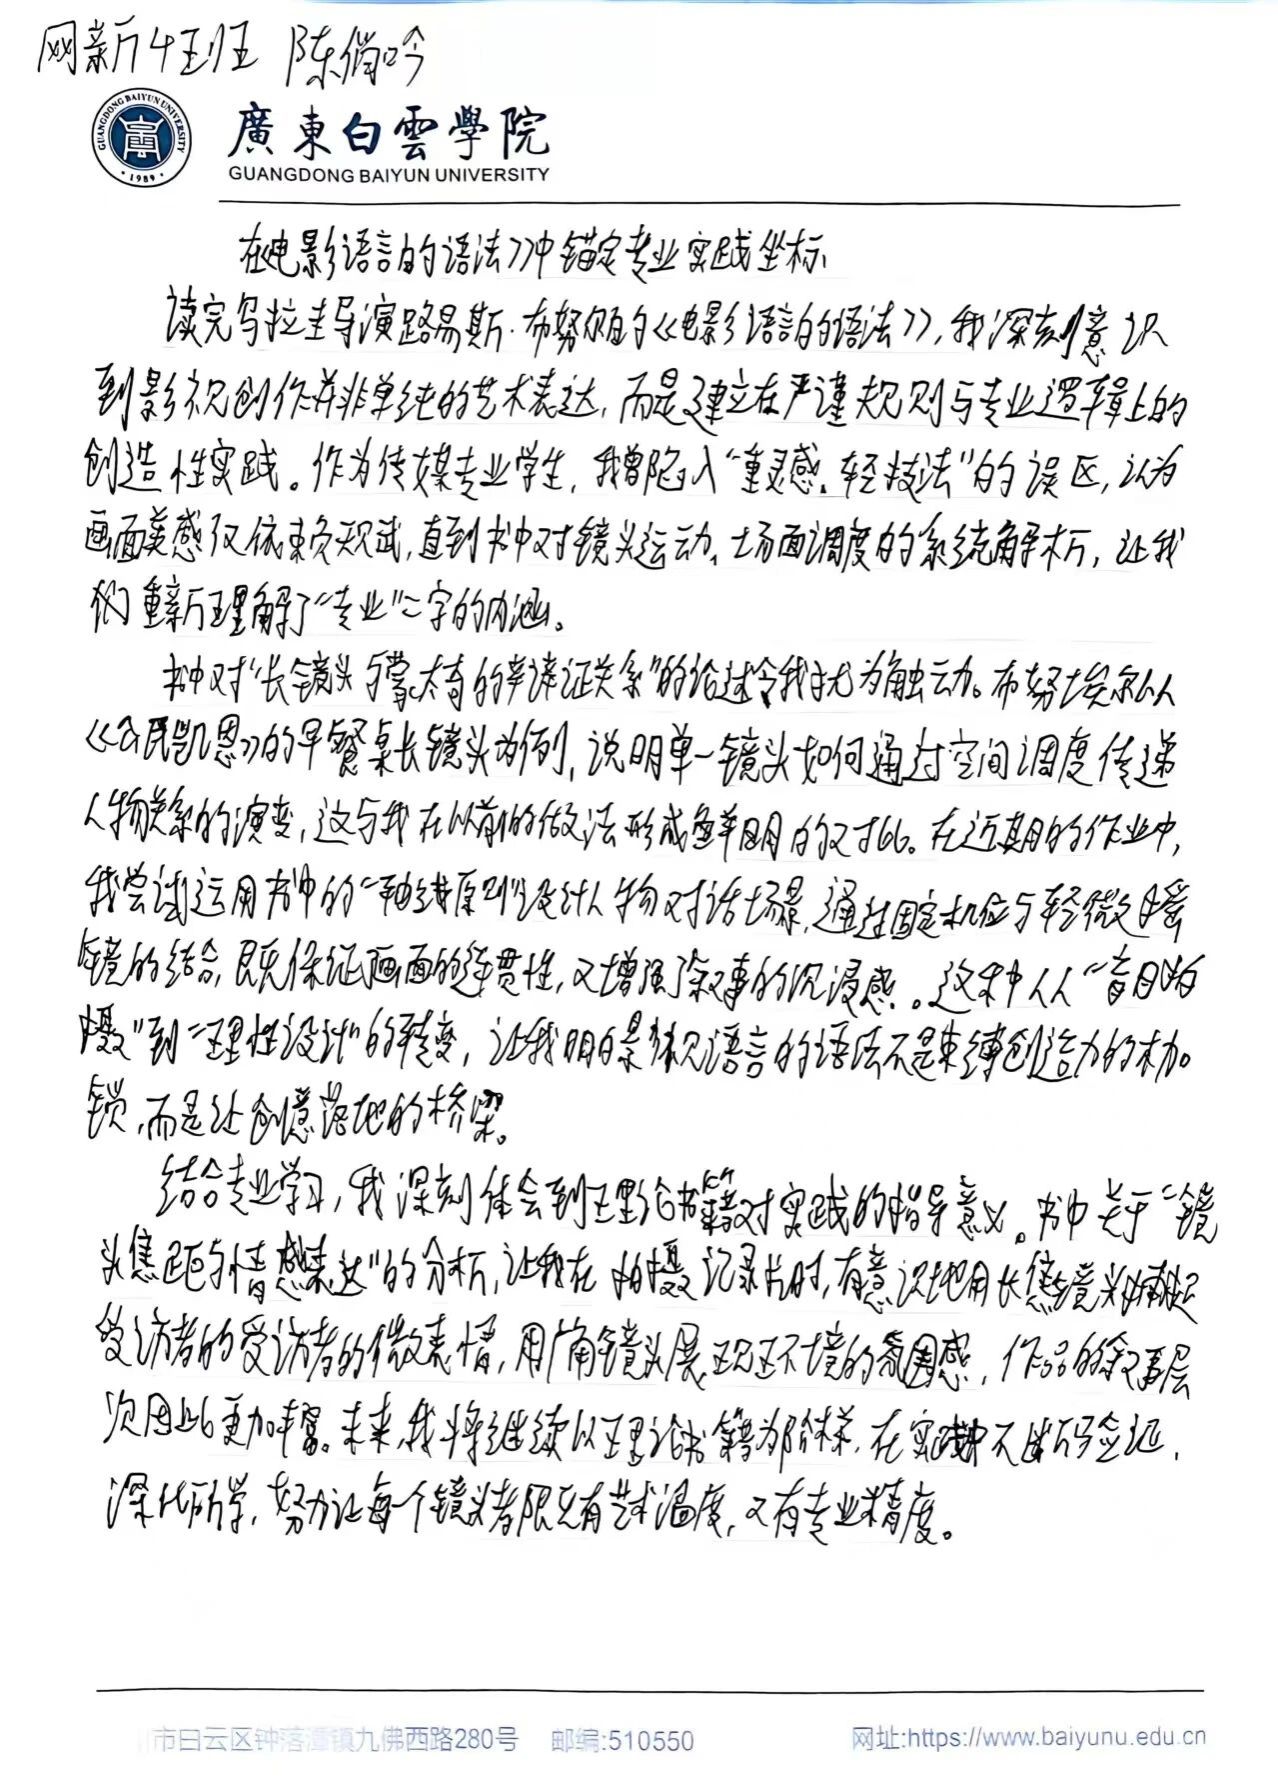 网新4班 陈俏吟
GUANGDONG BAIYUN UNIVERSITY
1989
廣東白雲學院
GUANGDONG BAIYUN UNIVERSITY
在电影语言的语法》中锚定专业实践坐标
读完乌拉圭导演路易斯·布努埃尔的《电影语言的语法》,我深刻意识
到影视创作并非单纯的艺术表达,而是建立在严谨规则与专业逻辑上的
创造性实践。作为传媒专业学生,我曾陷入“重灵感、轻技法”的误区,认为
画面美感仅依赖,直到书中对镜头运动、场面调度的系统解析,让我
们重新理解了“专业”二字的内涵。
书中对“长镜头与蒙太奇的辩证关系”的论述令我尤为触动。布努埃尔以
《公民凯恩》的早餐桌长镜头为例,说明单一镜头如何通过空间调度传递
人物关系的演变,这与我在以前的做法形成鲜明的对比。在近期的作业中,
我尝试运用书中的“轴线原则”设计人物对话场景,通过固定机位与轻微摇
镜的结合,既保证画面的连贯性,又增强了叙事的沉浸感。这种从“盲目拍
摄”到“理性设计”的转变,让我明白影视语言的语法不是束缚创造力的枷
锁,而是让创意落地的桥梁。
结合专业学习,我深刻体会到理论书籍对实践的指导意义。书中关于“镜
头焦距与情感表达”的分析,让我在拍摄记录片时,有意识地用长焦镜头捕捉
受访者的受访者的微表情,用广角镜头展现环境的氛围感,作品的叙事层
次因此更加丰富。未来,我将继续以理论书籍为阶梯,在实践中不断验证、
深化所学,努力让每个镜头都既有艺术温度,又有专业精度。
市白云区钟落潭镇九佛西路280号 邮编:510550 网址:https://www.baiyunu.edu.cn